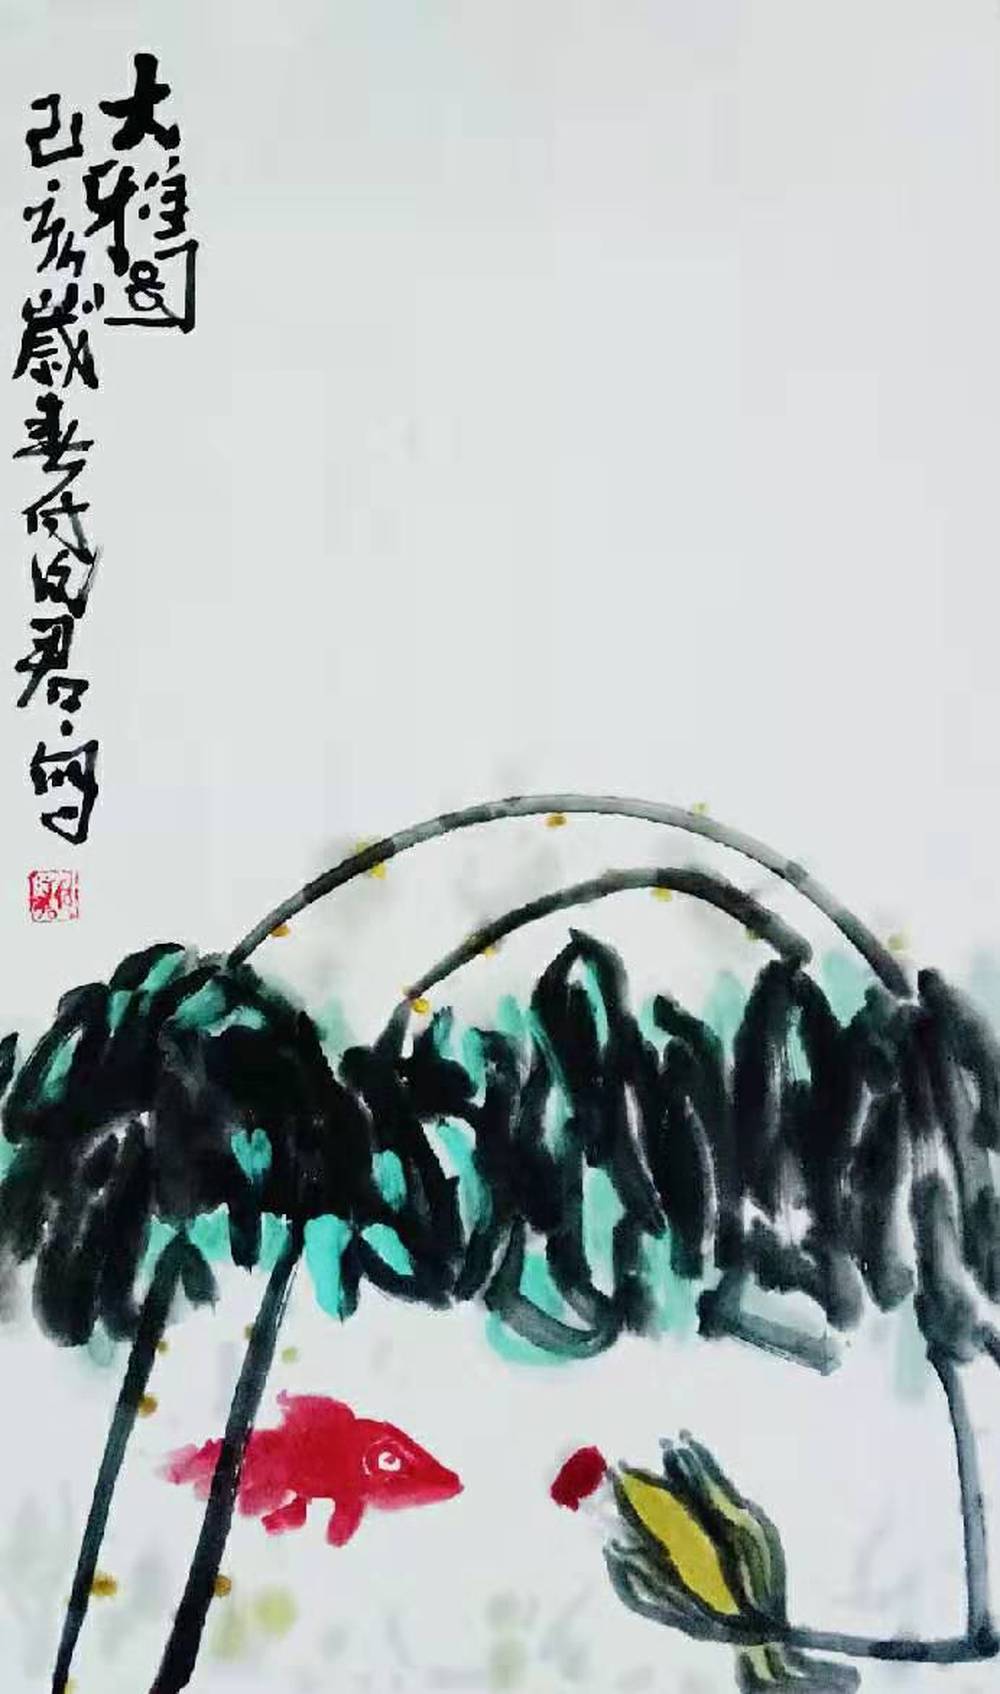 大雅图
己亥岁春付汉君写